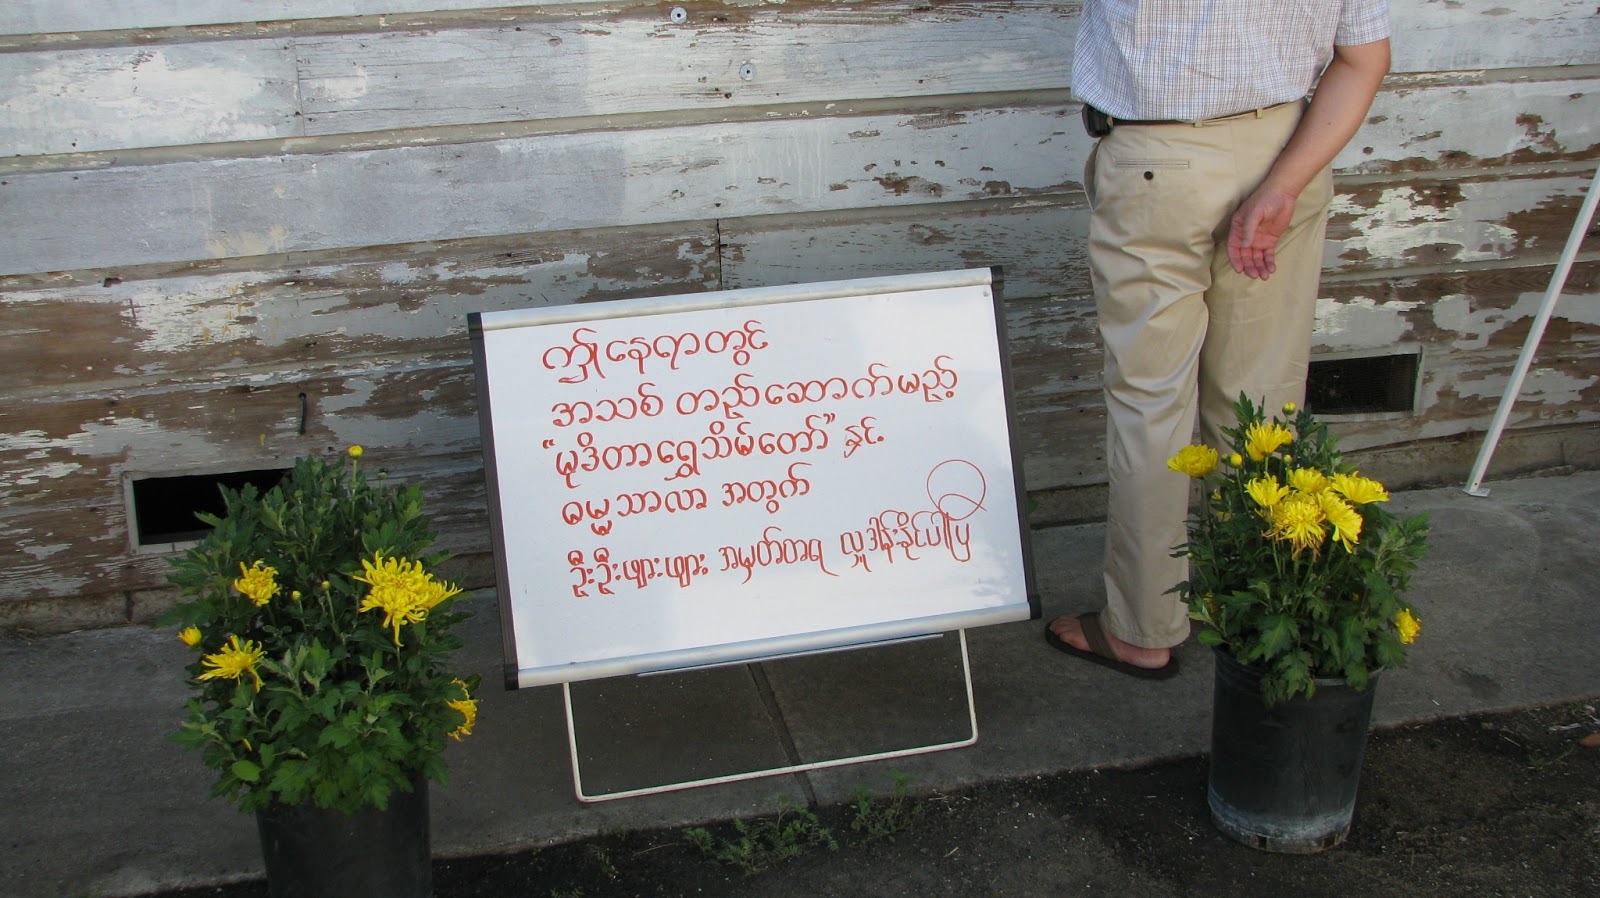 ဤနေရာတွင်
အသစ် တည်ဆောက်မည့်
“မုဒိတာရွှေသိမ်တော်” နှင့်
ဓမ္မသာလာ အတွက်
ဦးဦးဖျားဖျား အမှတ်တရ လှူဒါန်းနိုင်ပါပြီ